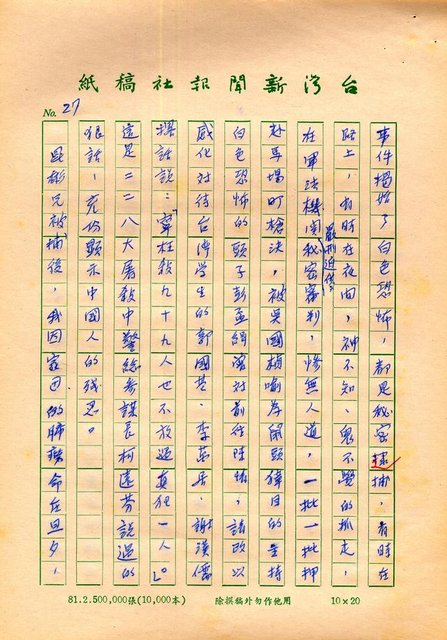 台灣新聞報社稿紙
No. 27
事件揭始了白色恐怖,都是秘密逮捕,有時在
路上,有時在夜間,神不知、鬼不覺的抓走,
嚴刑逼供
在軍法機關秘密審判,慘無人道,一批一批押
赴馬場町槍決,被吳國楨喻為鼠頭獐目的主持
白色恐怖的頭子彭孟緝當對前往陳情,請改以
感化對待台灣學生的郭國基、李萬居、謝漢儒
撂話說:「寧枉殺九十九人也不放過真犯一人」。
這是二二八大屠殺中警總參謀長柯遠芬說過的
狠話,充份顯示中國人的殘忍。
昆彬兄被捕後,我因家的肺癆命在旦夕,
81.2.500,000張(10,000本) 除撰稿外勿作他用 10×20